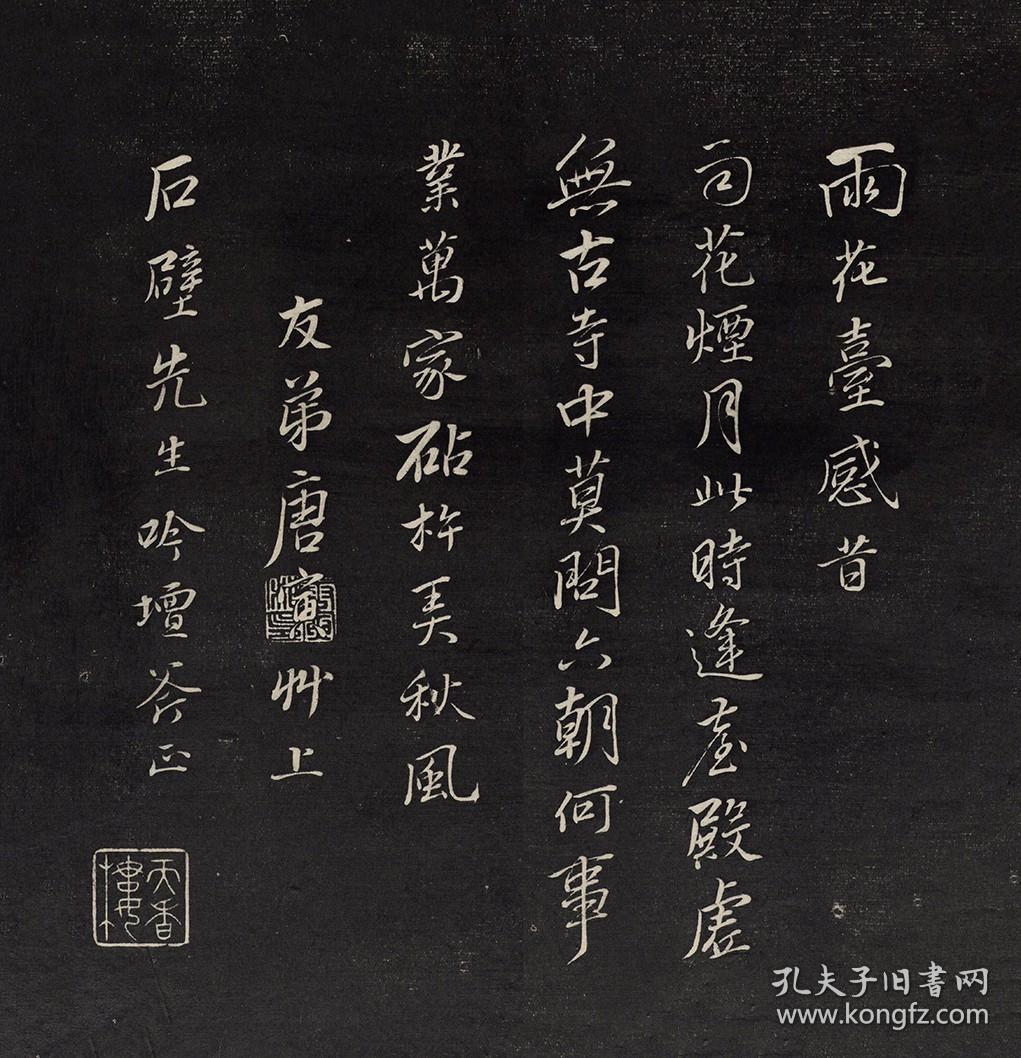 雨花臺感昔
司花煙月此時逢臺殿虛
無古寺中莫問六朝何事
業萬家砧杵秋風
友弟唐寅艸上
石壁先生吟壇荅正
天香樓
孔夫子旧书网
www.kongfz.com